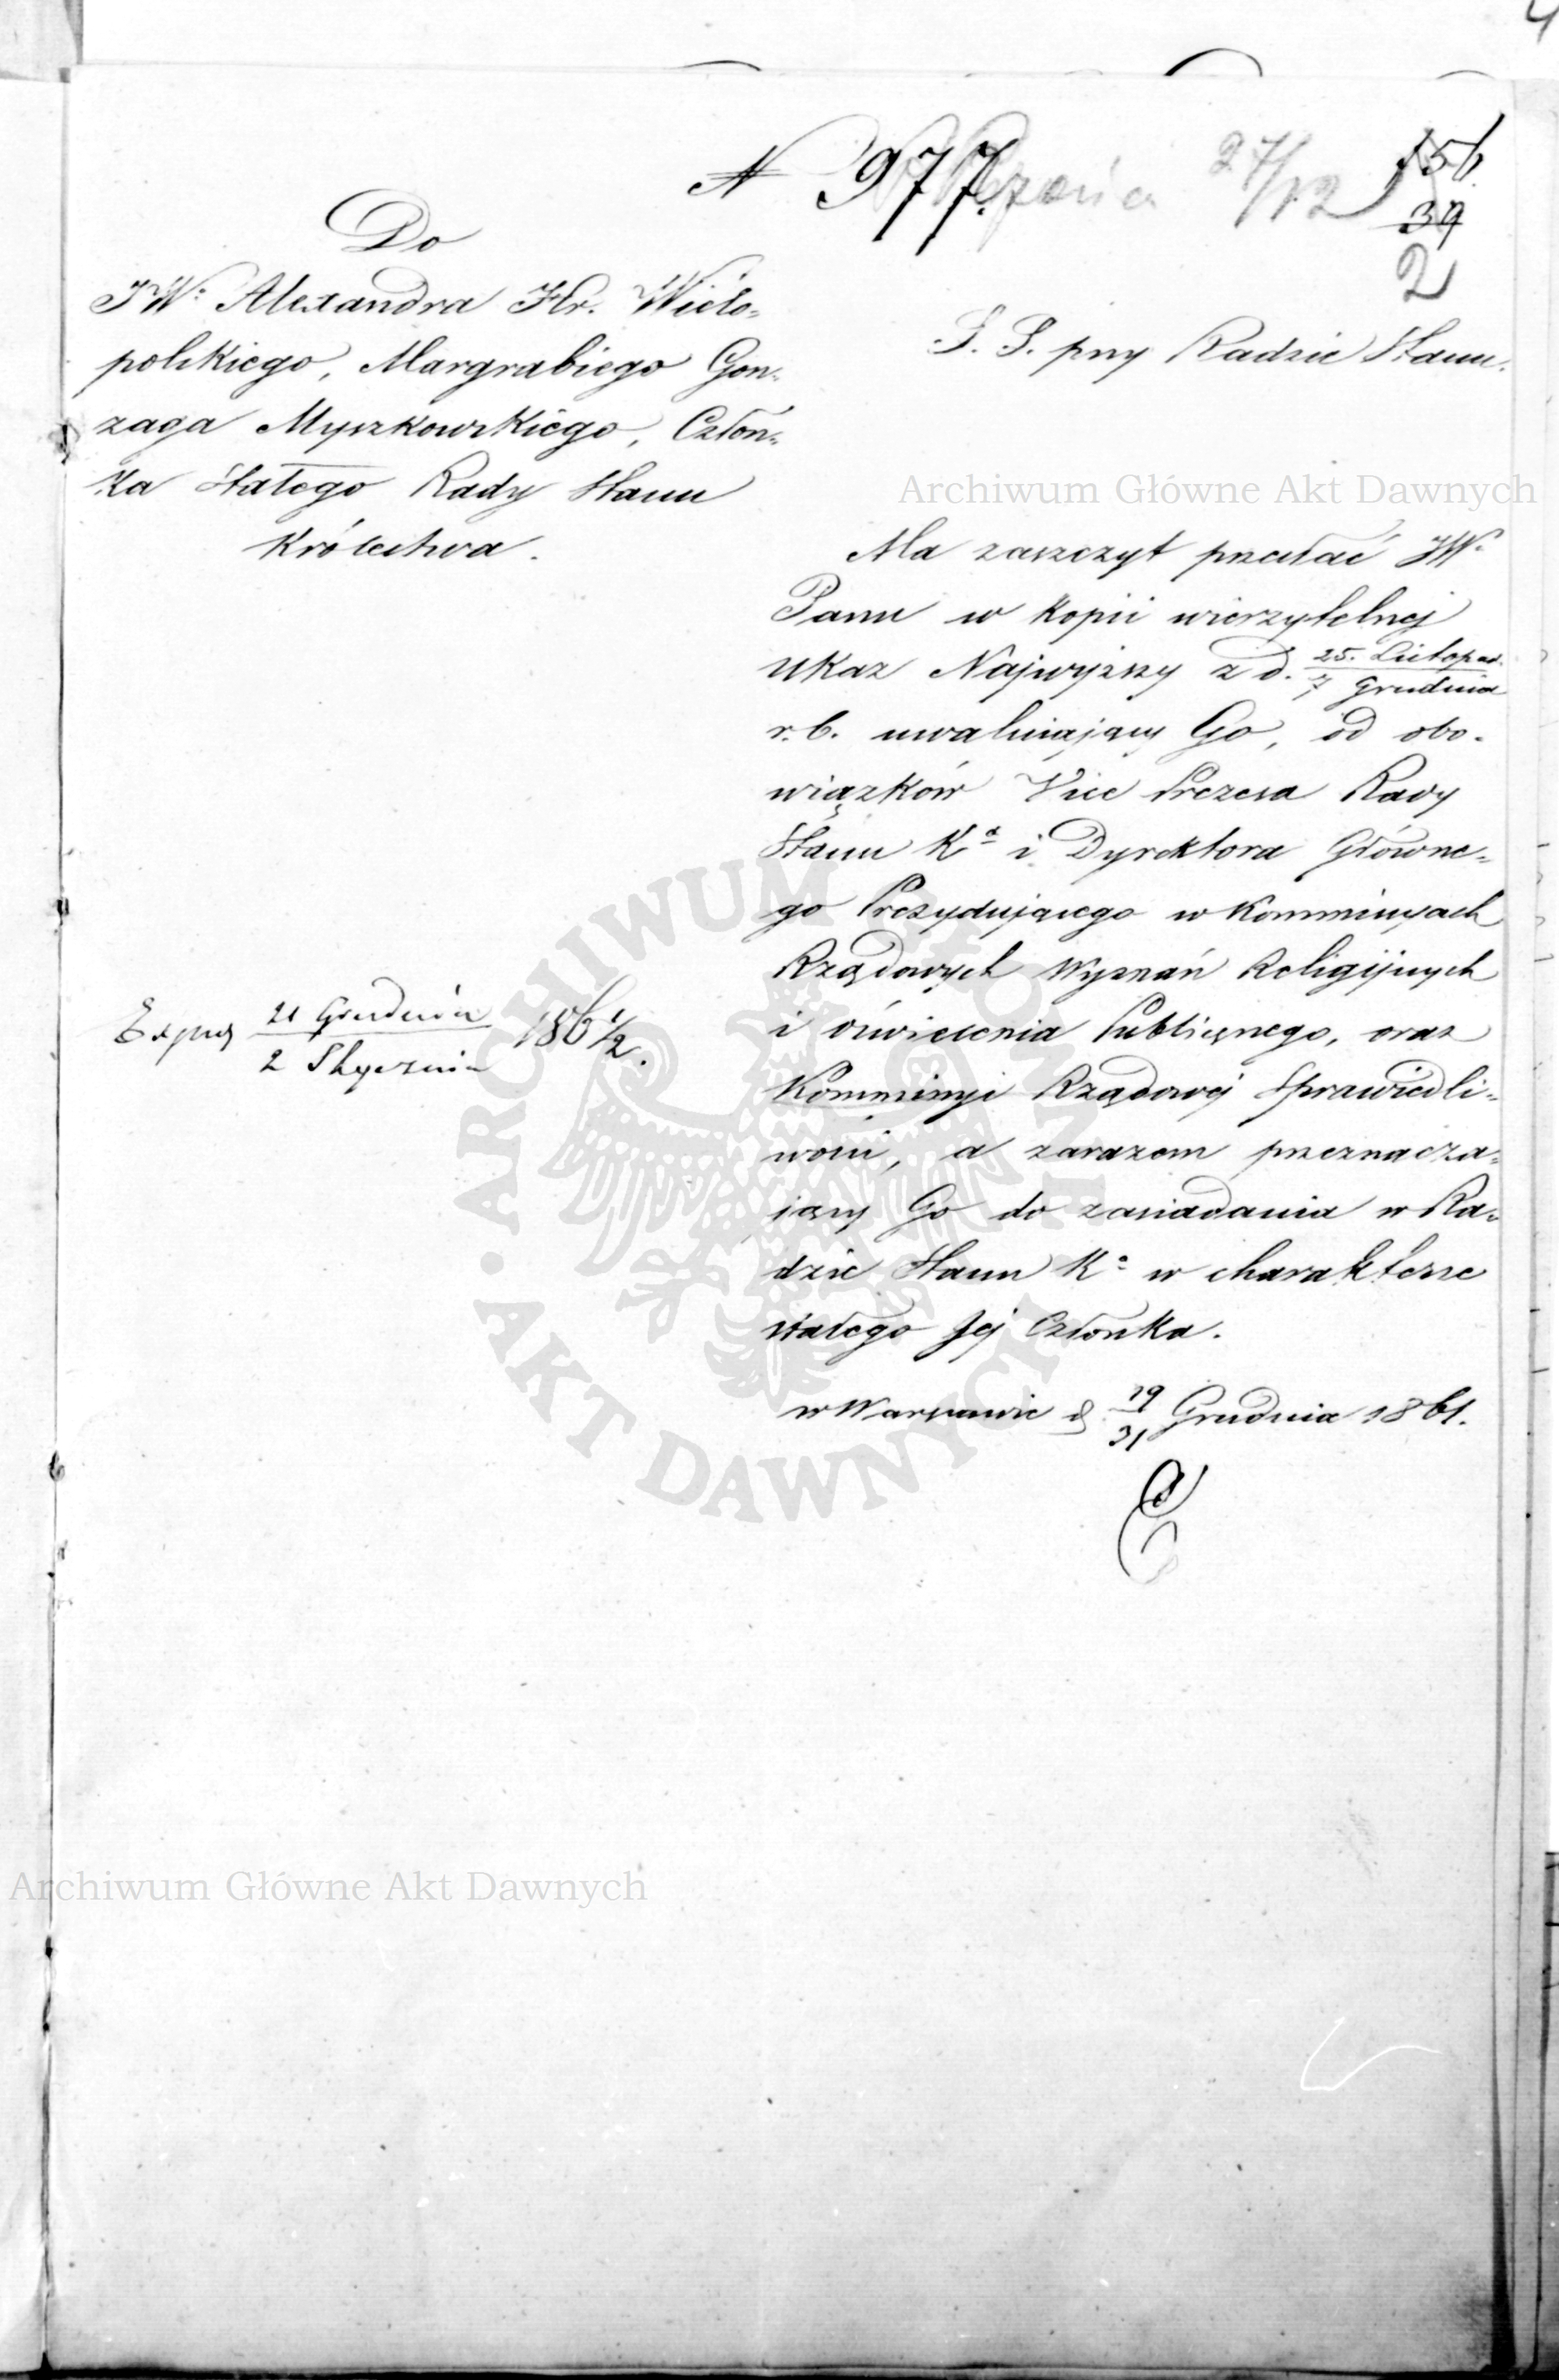 4
N 977.
27/12
156
39
2
Do
JW: Alexandra Hr. Wielo-
polskiego, Margrabiego Gon-
zaga Myszkowskiego, Człon-
ka Stałego Rady Stanu
Królestwa.
S. S. przy Radzie Stanu.
Archiwum Główne Akt Dawnych
Ma zaszczyt przesłać JW.
Panu w kopii wierzytelnej
Ukaz Najwyższy z d. 25. Listopad.
7 Grudnia
r.b. uwalniający Go, od obo-
wiązków Vice Prezesa Rady
Stanu Ka i Dyrektora Główne-
go Prezydującego w Kommissyach
Rządowych Wyznań Religijnych
i Oświecenia Publicznego, oraz
Kommissyi Rządowej Sprawiedli-
wości, a zarazem przeznacza-
jący Go do zasiadania w Ra-
dzie Stanu Ka w charakterze
stałego Jej Członka.
w Warszawie d. 19/31 Grudnia 1861.
Exped 21 Grudnia
2 Stycznia
186 1/2.
ARCHIWUM GŁÓWNE • AKT DAWNYCH
Archiwum Główne Akt Dawnych